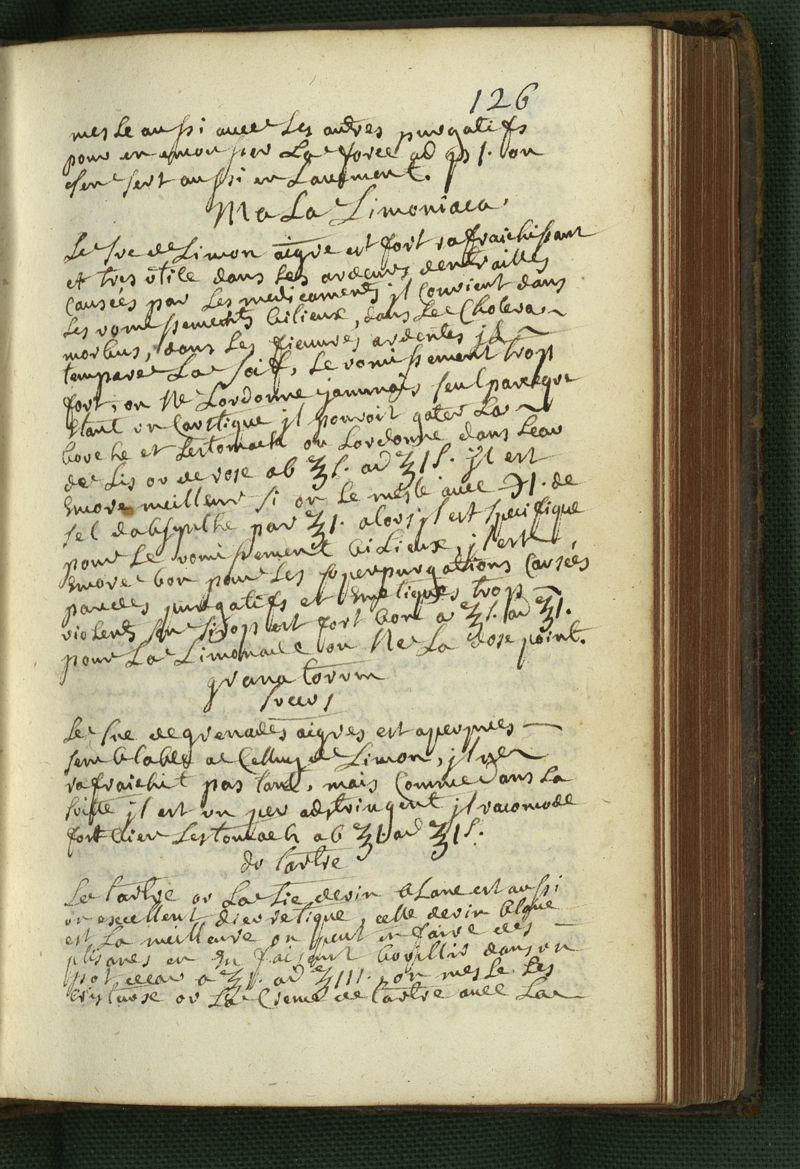 126
mesle aussi avec Les autres purgatifs
pour en emousser La force ad ʒß 1. on
s'en sert aussi en Lavement.
Mala Limoniaca
Le suc de Limon aigre est fort rafraichissant
et tres utile dans Les ardeurs dentrailles
Causées par Les medicaments jl Convient dans
Les vomissements bilieux, dans Le Cholera
morbus, dans Les fieuvres ardentes jl
tempare La soif, Le vomissement trop
fort, on Ne Lordonne jammais seul parceque
Etant un Caustique jl pouroit gater La
bouche et Lestomach on Lordonne dans Leau
de Lis ou de rose ab ℥ ß. ad ℥ 1 ß. jl est
Encore meilleur si on Le mesle avec ℈1. de
sel dabsynthe par ℥1. alors jl est specifique
pour Le vomissement biLieux, jl est
Encore bon pour Les superpurgations Causées
par des purgatifs et Emetiques trop
violents son sirop est fort bon a ℥ ß. ad ℥1.
pour La Limonade on Ne La dose point.
granatorum
succus
Le suc de grenades aigres est aperpres
semblable a Celluy de Limon, jl ne
rafraichit pas tant, mais Comme dans La
suitte jl est un peu adstringent jl racomode
fort bien Lestomach ab ℥1 ad ℥1 ß.
du tartre
Le tartre ou La Lie de vin bLanc est aussi
un excellent diuretique, celle de vin blanc
est La meilleure on peut en faire des
ptisanes en En faisant bouillir dans un
pot deau a ℥ii. ad ℥iii. on mesle Les
Cristaux ou La Creme de tartre avec La